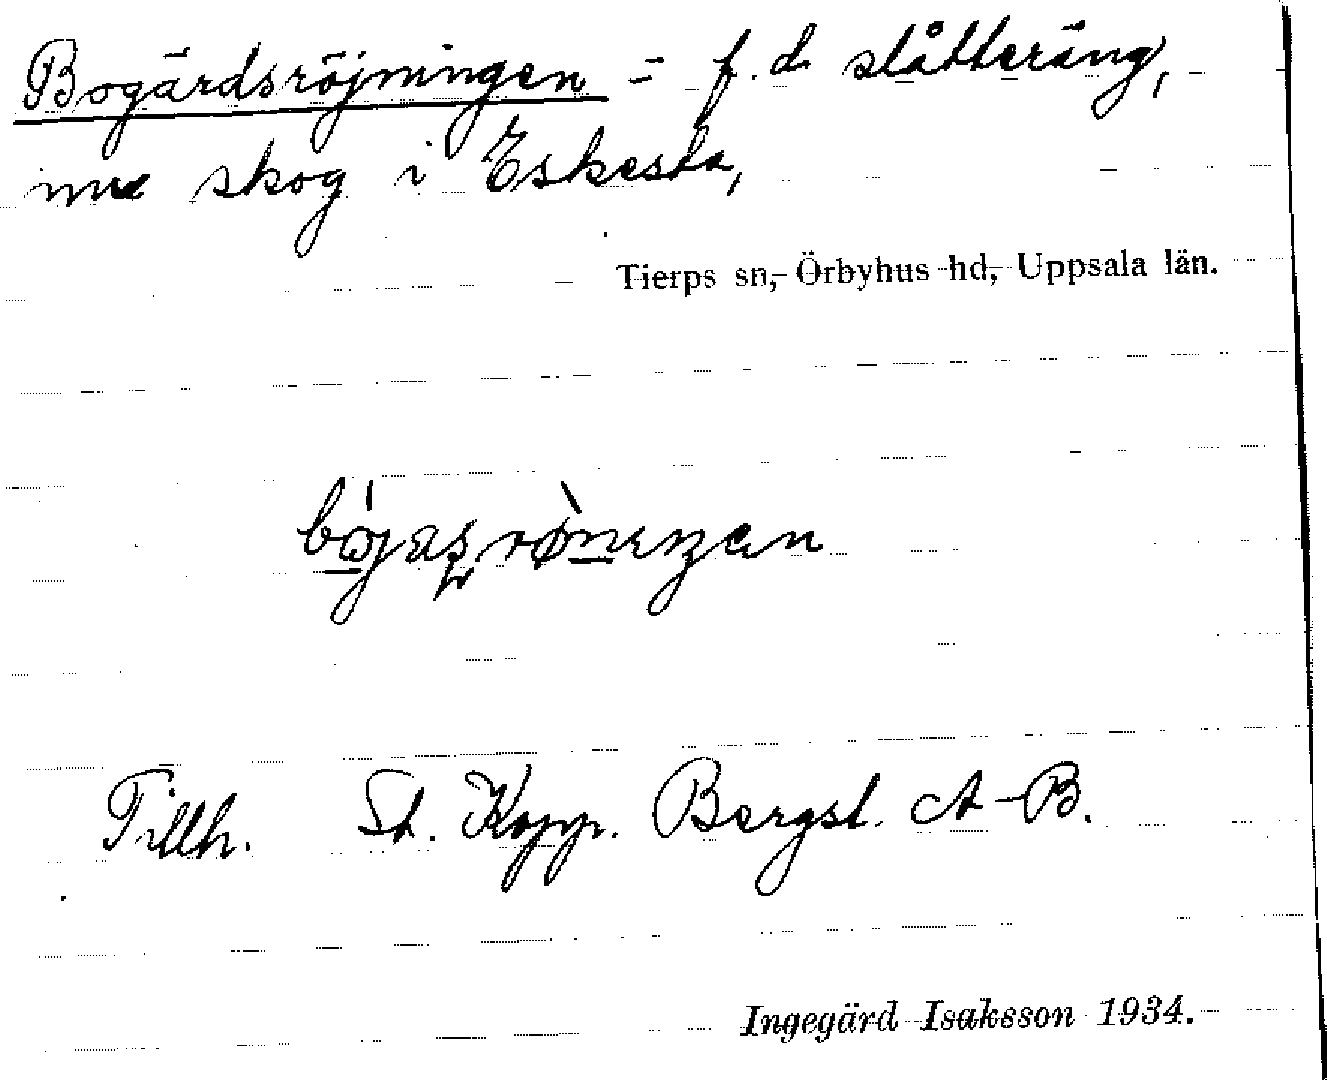 Bogärdsröjningen = f.d. slåtteräng,
nu skog i Eskesta,
Tierps sn, Örbyhus hd, Uppsala län.
Tillh. St. Kopp. Bergsl. A-B.
Ingegärd Isaksson 1934.